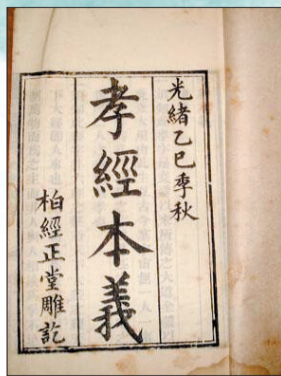 光緒乙巳季秋
孝經本義
柏經正堂雕訖